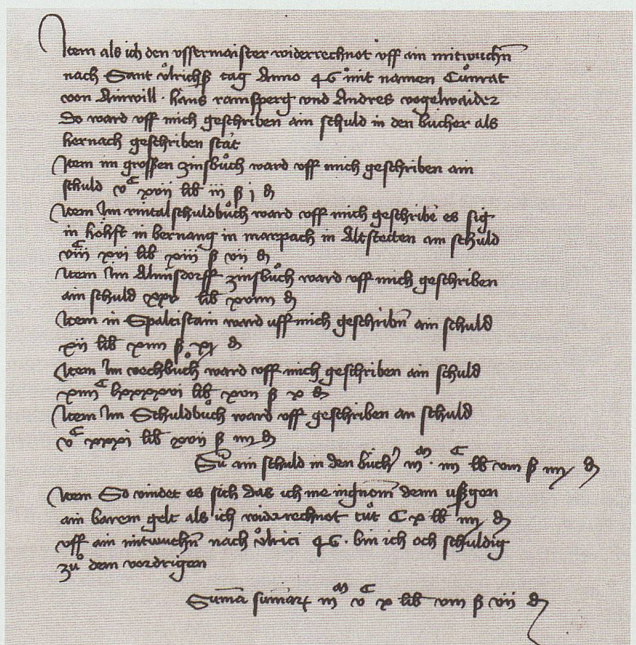 Item als ich den ussermaister widerrechnot uff ain mitwuchn
nach Sant Ůlrichß tag Anno 46 mit namen Cůnrat
von Ainwill · Hans ramsperg und Andres vogelwaider
Do ward uff mich geschriben ain schuld in den bücher als
hernach geschriben stat
Item im grossen zinsbůch ward uff mich geschriben ain
schuld vᶜ xvii lib iii ß j d
Item Im rintalschuldbůch ward uff mich geschribē es sig
in höhst in bernang in marpach in Altstetten ain schuld
xvi lib xiii ß vii d
Item Im zinsbůch ward uff mich geschriben
ain schuld xxv lib xviiii d
Item in Spaltistain ward uff mich geschribn ain schuld
xii lib xiiii ß xj d
Item Im wochbůch ward uff mich geschriben ain schuld
xiiiiᶜ lxxxxvi lib xvii ß v d
Item Im Schuldbůch ward uff geschriben an schuld
vᶜ xxxi lib xvii ß iiii d
ain schuld in den bůch iiiᵐ · iiiiᶜ lib viii ß iiij d
Item So vindet es sich das ich me ingnom denn ußgen
ain barem gelt als ich widerrechnot tůt C x lib iiij d
uff ain mitwuchn nach ůlrici 46 · bin ich och schuldig
zů dem vordrigen
Suma sumarū iiiᵐ vᶜ x lib viii ß vii d